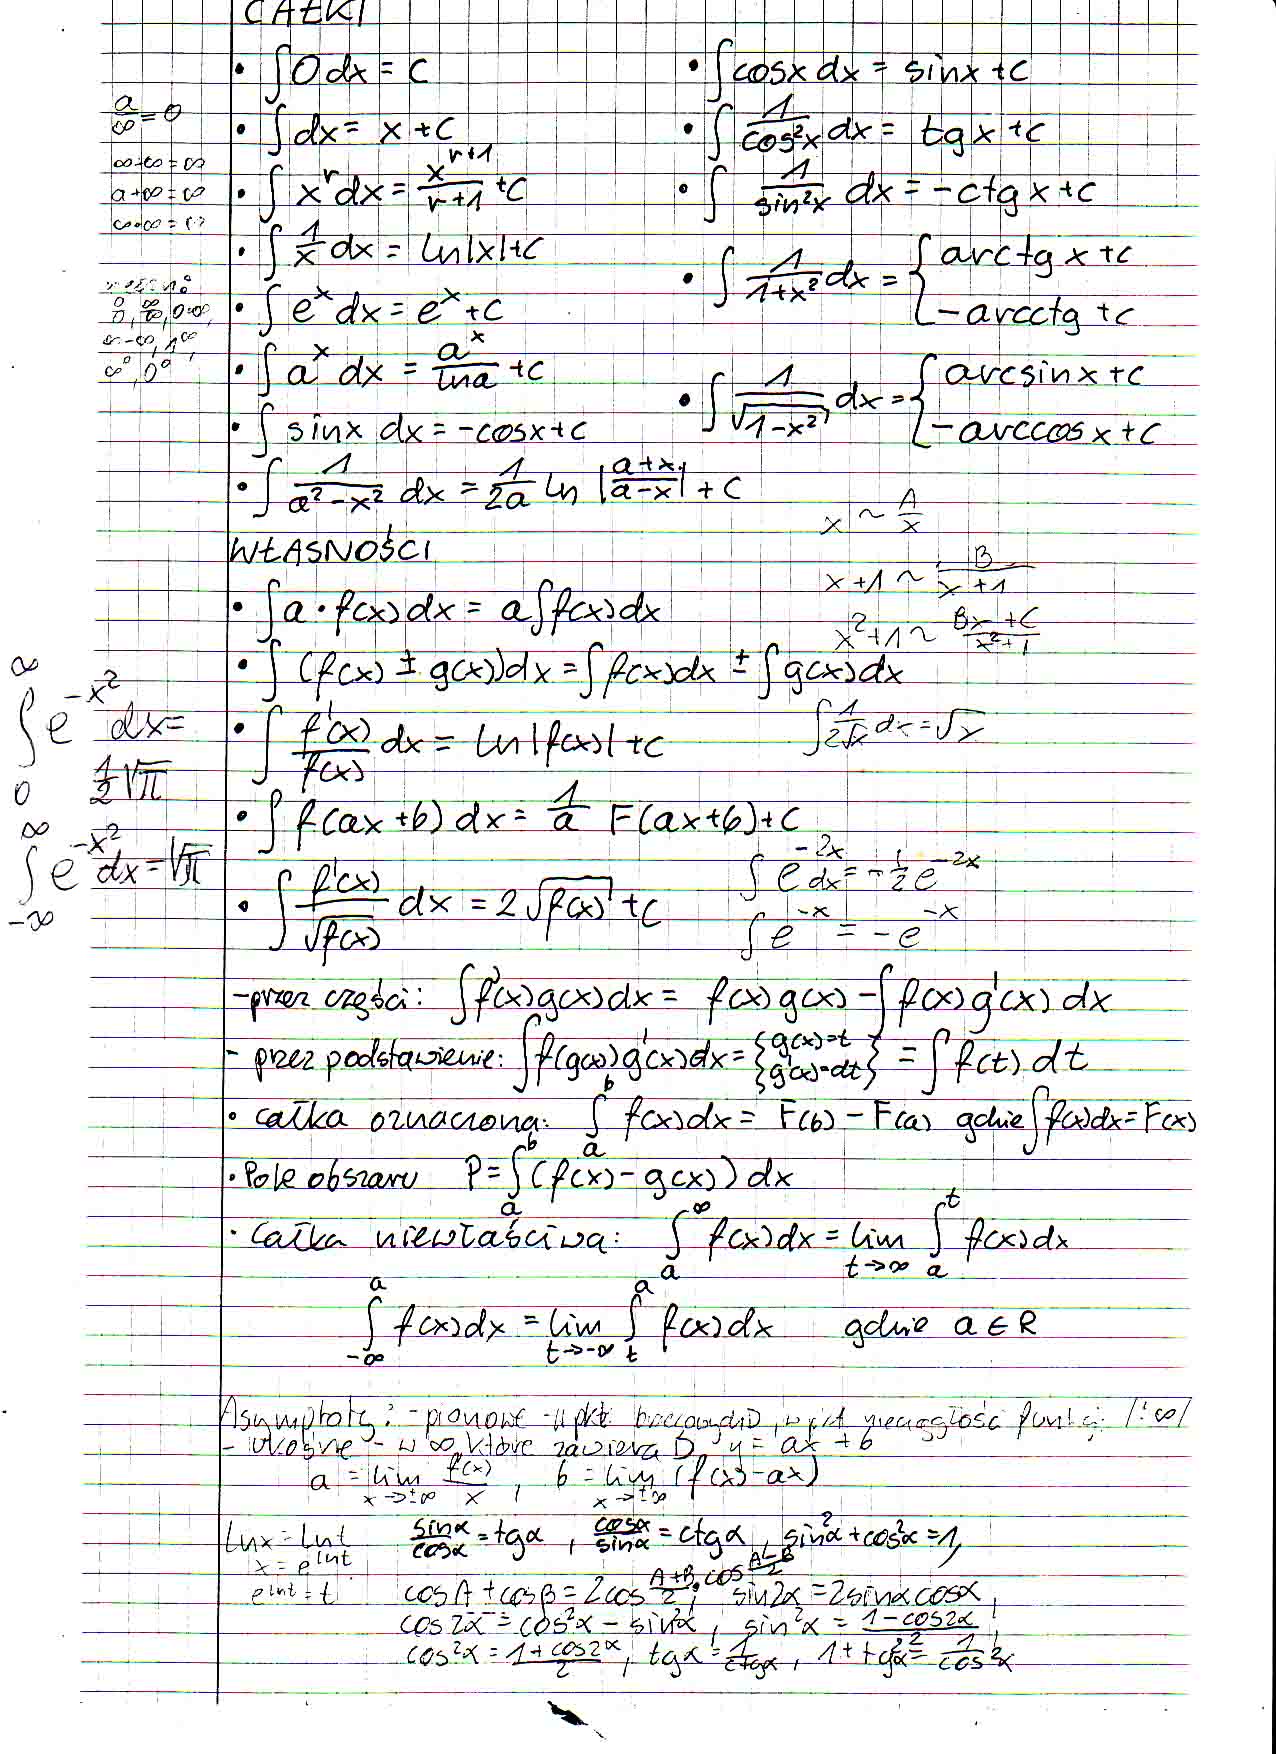 CAŁKI
• ∫0dx = c
• ∫dx = x+c
• ∫x^r dx = x^(r+1)/(r+1) +c
• ∫1/x dx = ln|x|+c
• ∫e^x dx = e^x+c
• ∫a^x dx = a^x/lna +c
• ∫sinx dx = -cosx+c
• ∫1/(a²-x²) dx = 1/2a ln |(a+x)/(a-x)| + c
• ∫cosx dx = sinx+c
• ∫1/cos²x dx = tgx+c
• ∫1/sin²x dx = -ctgx+c
• ∫1/(1+x²) dx = { arctgx+c
-arcctg+c
• ∫1/√(1-x²) dx = { arcsinx+c
-arccosx+c
a/∞ = 0
∞+∞=∞
a+∞=∞
∞·∞=∞
0/0, ∞/∞, 0·∞,
∞-∞, 1^∞,
∞^0, 0^0
x ~ A/x
x+1 ~ B/(x+1)
x²+1 ~ (Bx+C)/(x²+1)
WŁASNOŚCI
• ∫a·f(x)dx = a∫f(x)dx
• ∫(f(x) ± g(x))dx = ∫f(x)dx ± ∫g(x)dx
• ∫f'(x)/f(x) dx = ln|f(x)|+c
∫1/2√x dx = √x
• ∫f(ax+b)dx = 1/a F(ax+b)+c
• ∫f'(x)/√f(x) dx = 2√f(x) +c
∫e^(-2x) dx = -1/2 e^(-2x)
∫e^(-x) = -e^(-x)
∫_0^∞ e^(-x²) dx =
1/2 √π
∫_-∞^∞ e^(-x²) dx = √π
- przez części: ∫f'(x)g(x)dx = f(x)g(x) - ∫f(x)g'(x)dx
- przez podstawienie: ∫f(g(x))g'(x)dx = {g(x)=t g'(x)=dt} = ∫f(t)dt
• całka oznaczona: ∫_a^b f(x)dx = F(b) - F(a) gdzie ∫f(x)dx = F(x)
• Pole obszaru P = ∫_a^b (f(x) - g(x))dx
• Całka niewłaściwa: ∫_a^∞ f(x)dx = lim_(t→∞) ∫_a^t f(x)dx
∫_-∞^a f(x)dx = lim_(t→-∞) ∫_t^a f(x)dx gdzie a∈R
Asymptoty: - pionowe - w pkt. nieciągłość funkcj.
- ukośne - w ∞, które zawiera D, y = ax + b
a = lim_(x→±∞) f(x)/x, b = lim_(x→±∞) (f(x)-ax)
lnx = lnt
x = e^lnt
e^lnt = t
sinα/cosα = tgα, cosα/sinα = ctgα, sin²α+cos²α=1,
cosA+cosB = 2cos (A+B)/2 · cos (A-B)/2, sin2α = 2sinαcosα,
cos2α = cos²α - sin²α, sin²α = (1-cos2α)/2,
cos²α = (1+cos2α)/2, tgα = 1/ctgα, 1+tg²α = 1/cos²α